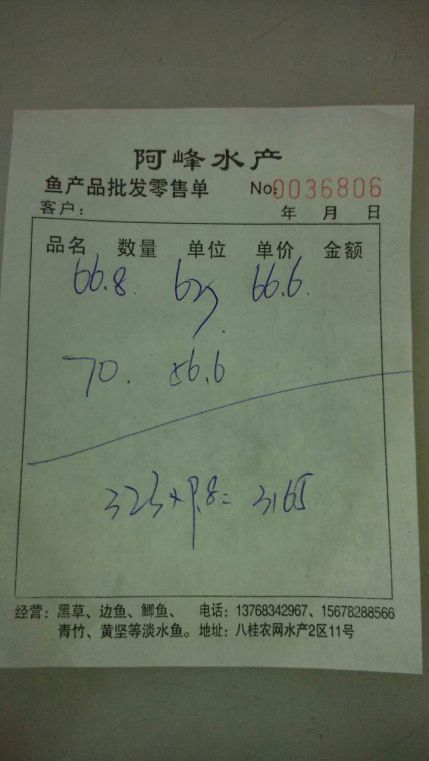 阿峰水产
鱼产品批发零售单 No:0036806
客户: 年 月 日
品名 数量 单位 单价 金额
66.8. 66.6.
70. 56.6
323×9.8=3165
经营:黑草、边鱼、鲫鱼、 电话:13768342967、15678288566
青竹、黄坚等淡水鱼。地址:八桂农网水产2区11号